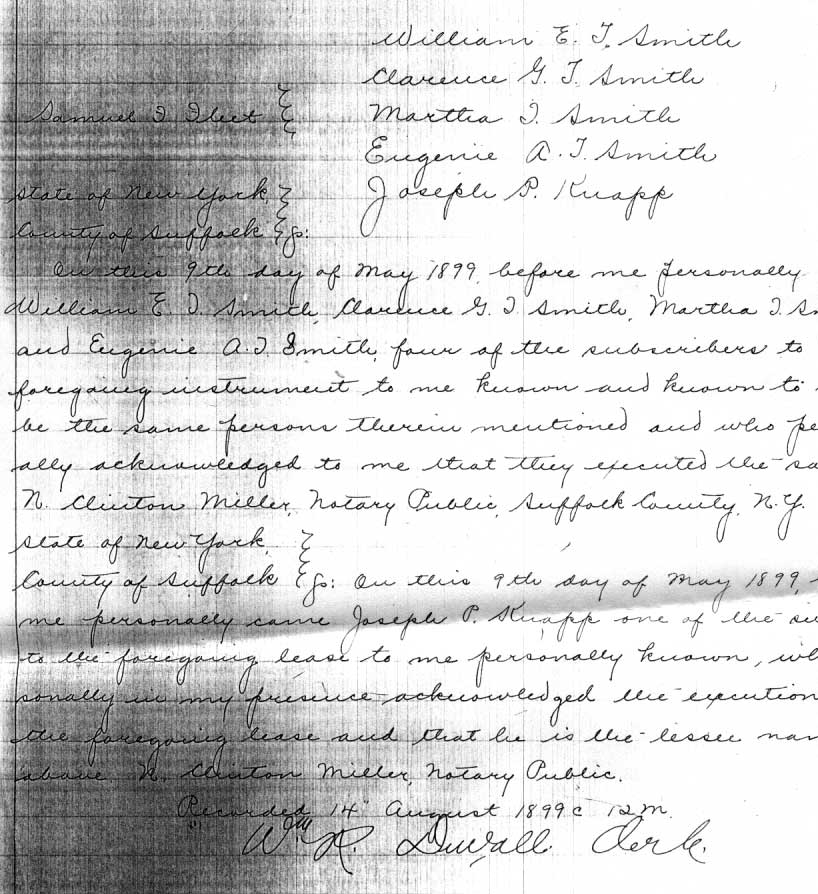 William E. T. Smith
Clarence G. T. Smith
Samuel T Fleet Martha T. Smith
Eugenie A. T. Smith
State of New York, Joseph P. Knapp
County of Suffolk ss:
On this 9th day of May 1899, before me personally
William E T. Smith, Clarence G. T Smith, Martha T. Sm
and Eugenie A. T. Smith, four of the subscribers to
foregoing instrument to me known and known to
be the same persons therein mentioned and who pe
ally acknowledged to me that they executed the sa
N. Clinton Miller, Notary Public, Suffolk County, N.Y.
State of New York,
County of Suffolk ss: On this 9th day of May 1899,
me personally came Joseph P. Knapp one of the su
to the foregoing lease to me personally known, wh
sonally in my presence acknowledged the execution
the foregoing lease and that he is the lessee nam
above N. Clinton Miller, Notary Public.
Recorded 14" August 1899 @ 12 M.
Wm R. Duvall Clerk.